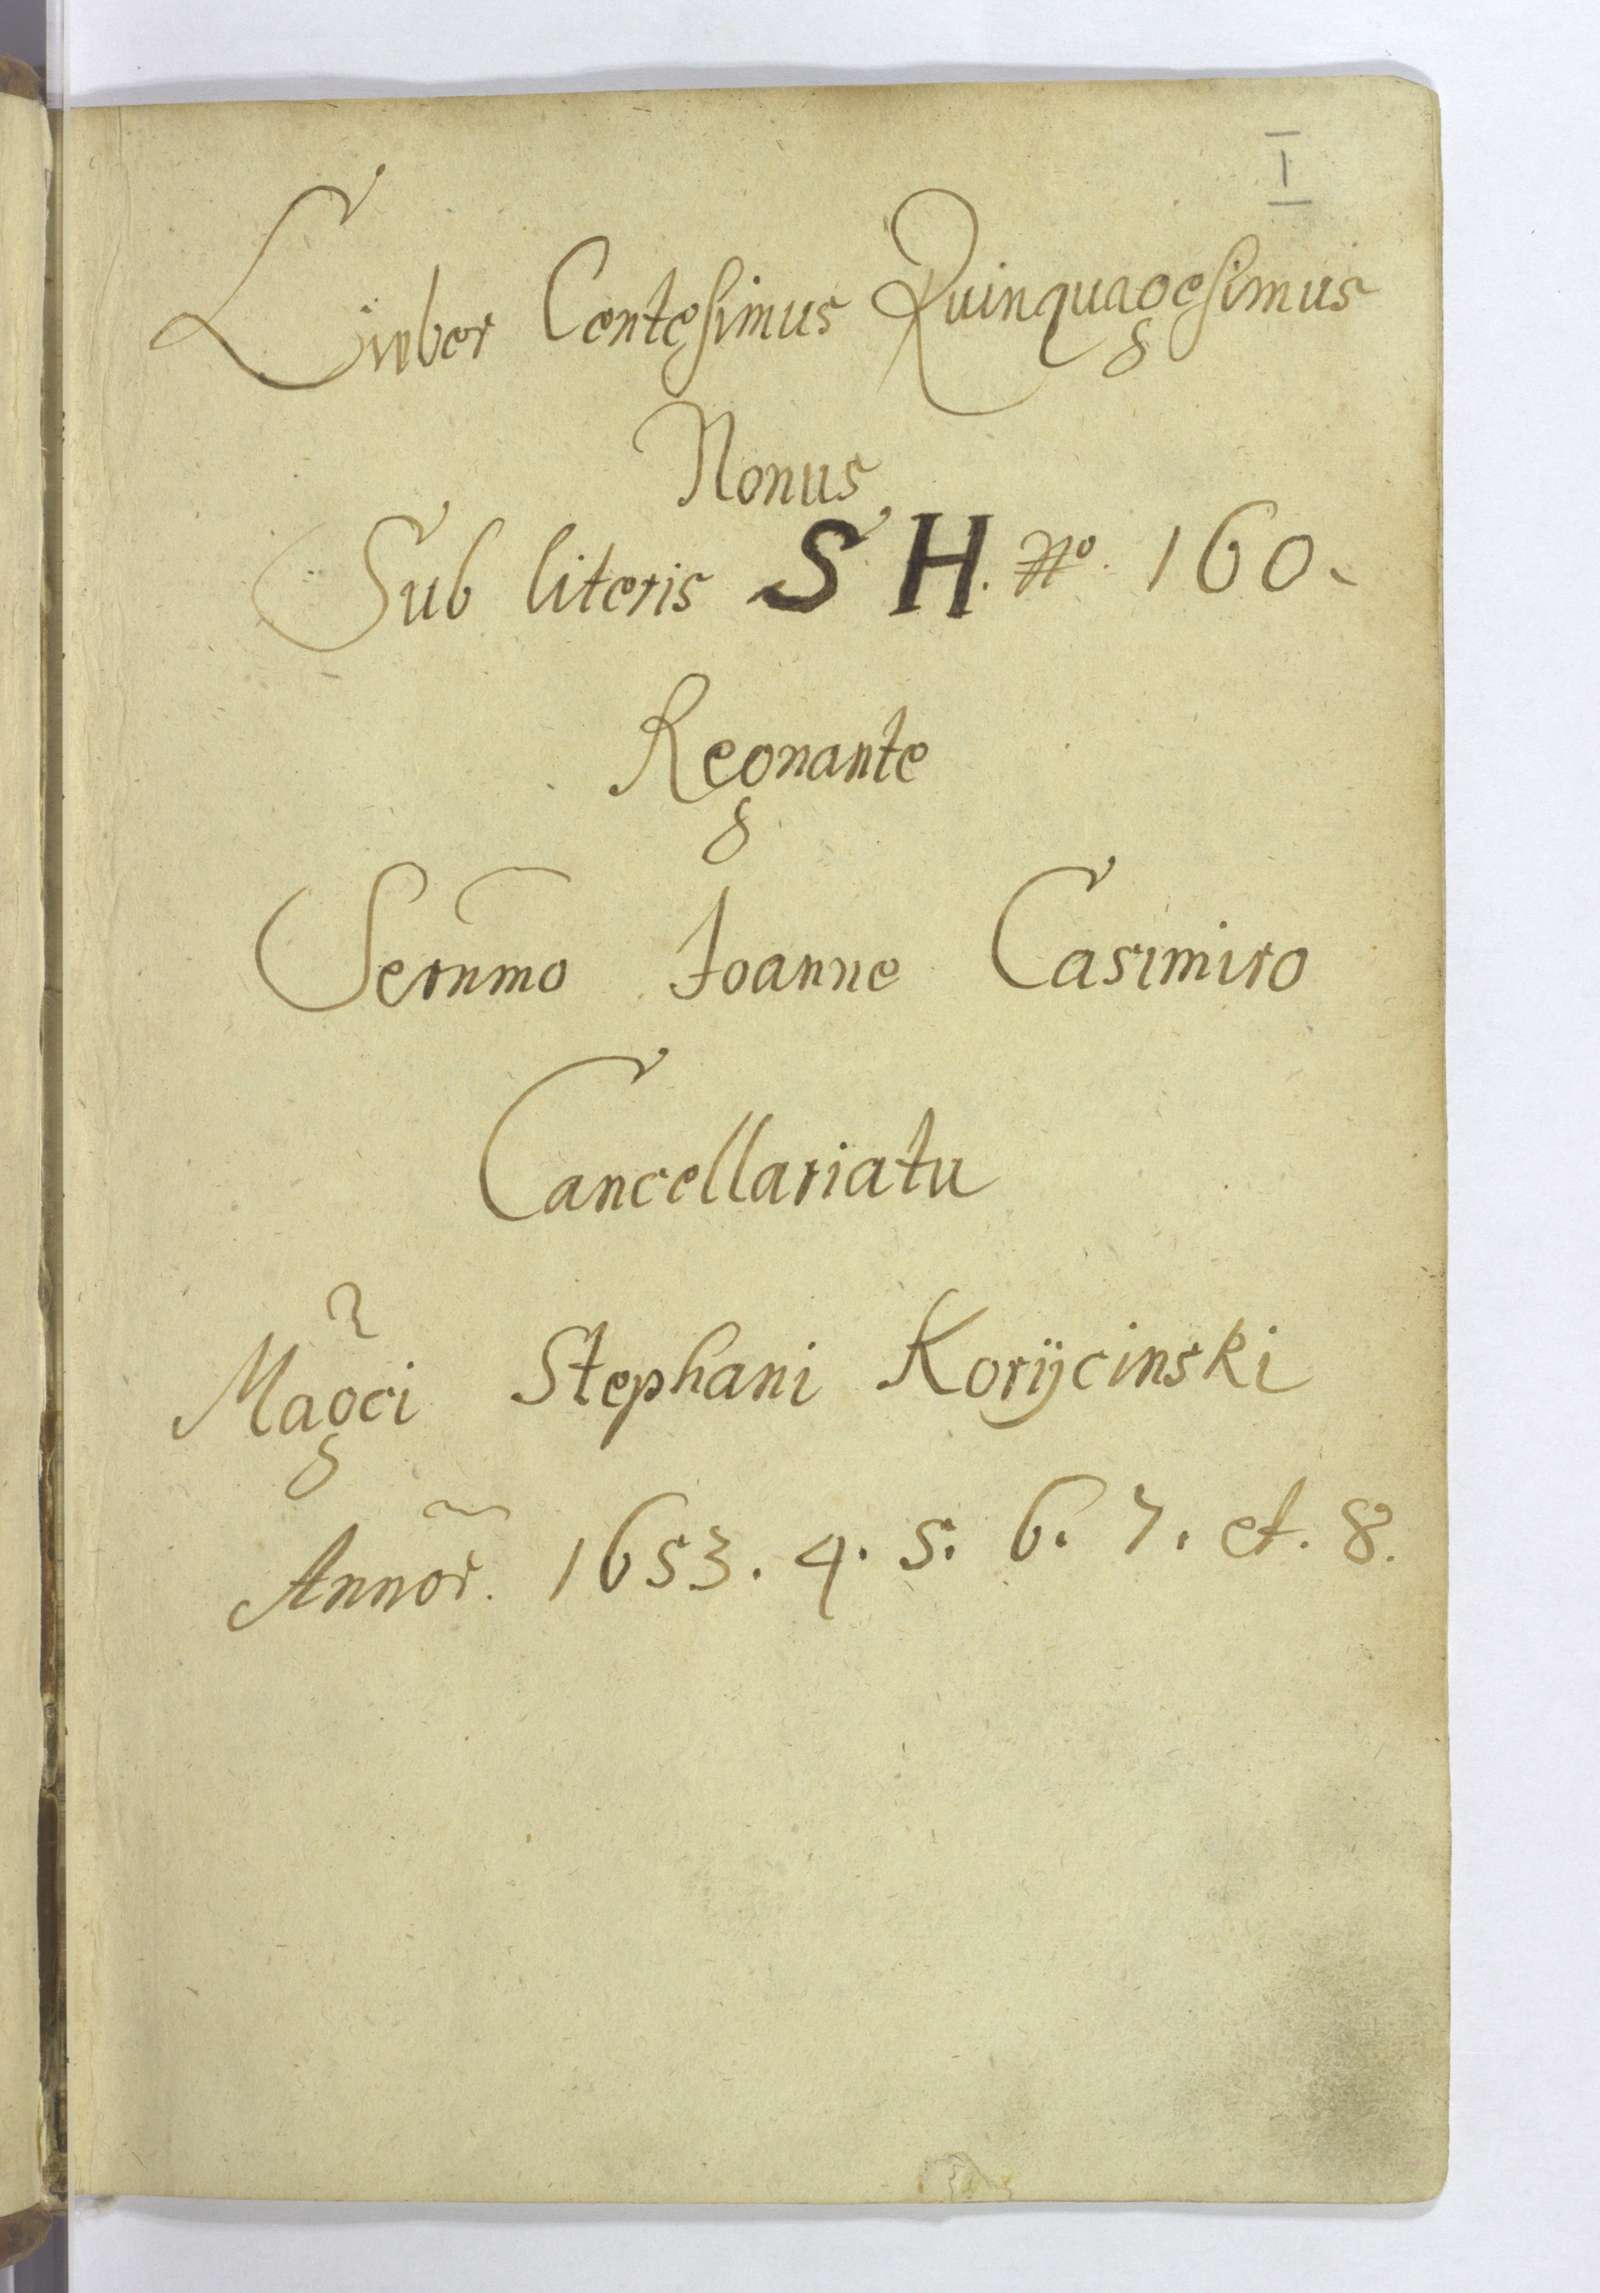 I
Liber Centesimus Quinquagesimus
Nonus
Sub literis S H. No. 160.
Regnante
Sernmo Joanne Casimiro
Cancellariatu
Magci Stephani Korycinski
Annor. 1653. 4. 5. 6. 7. et. 8.